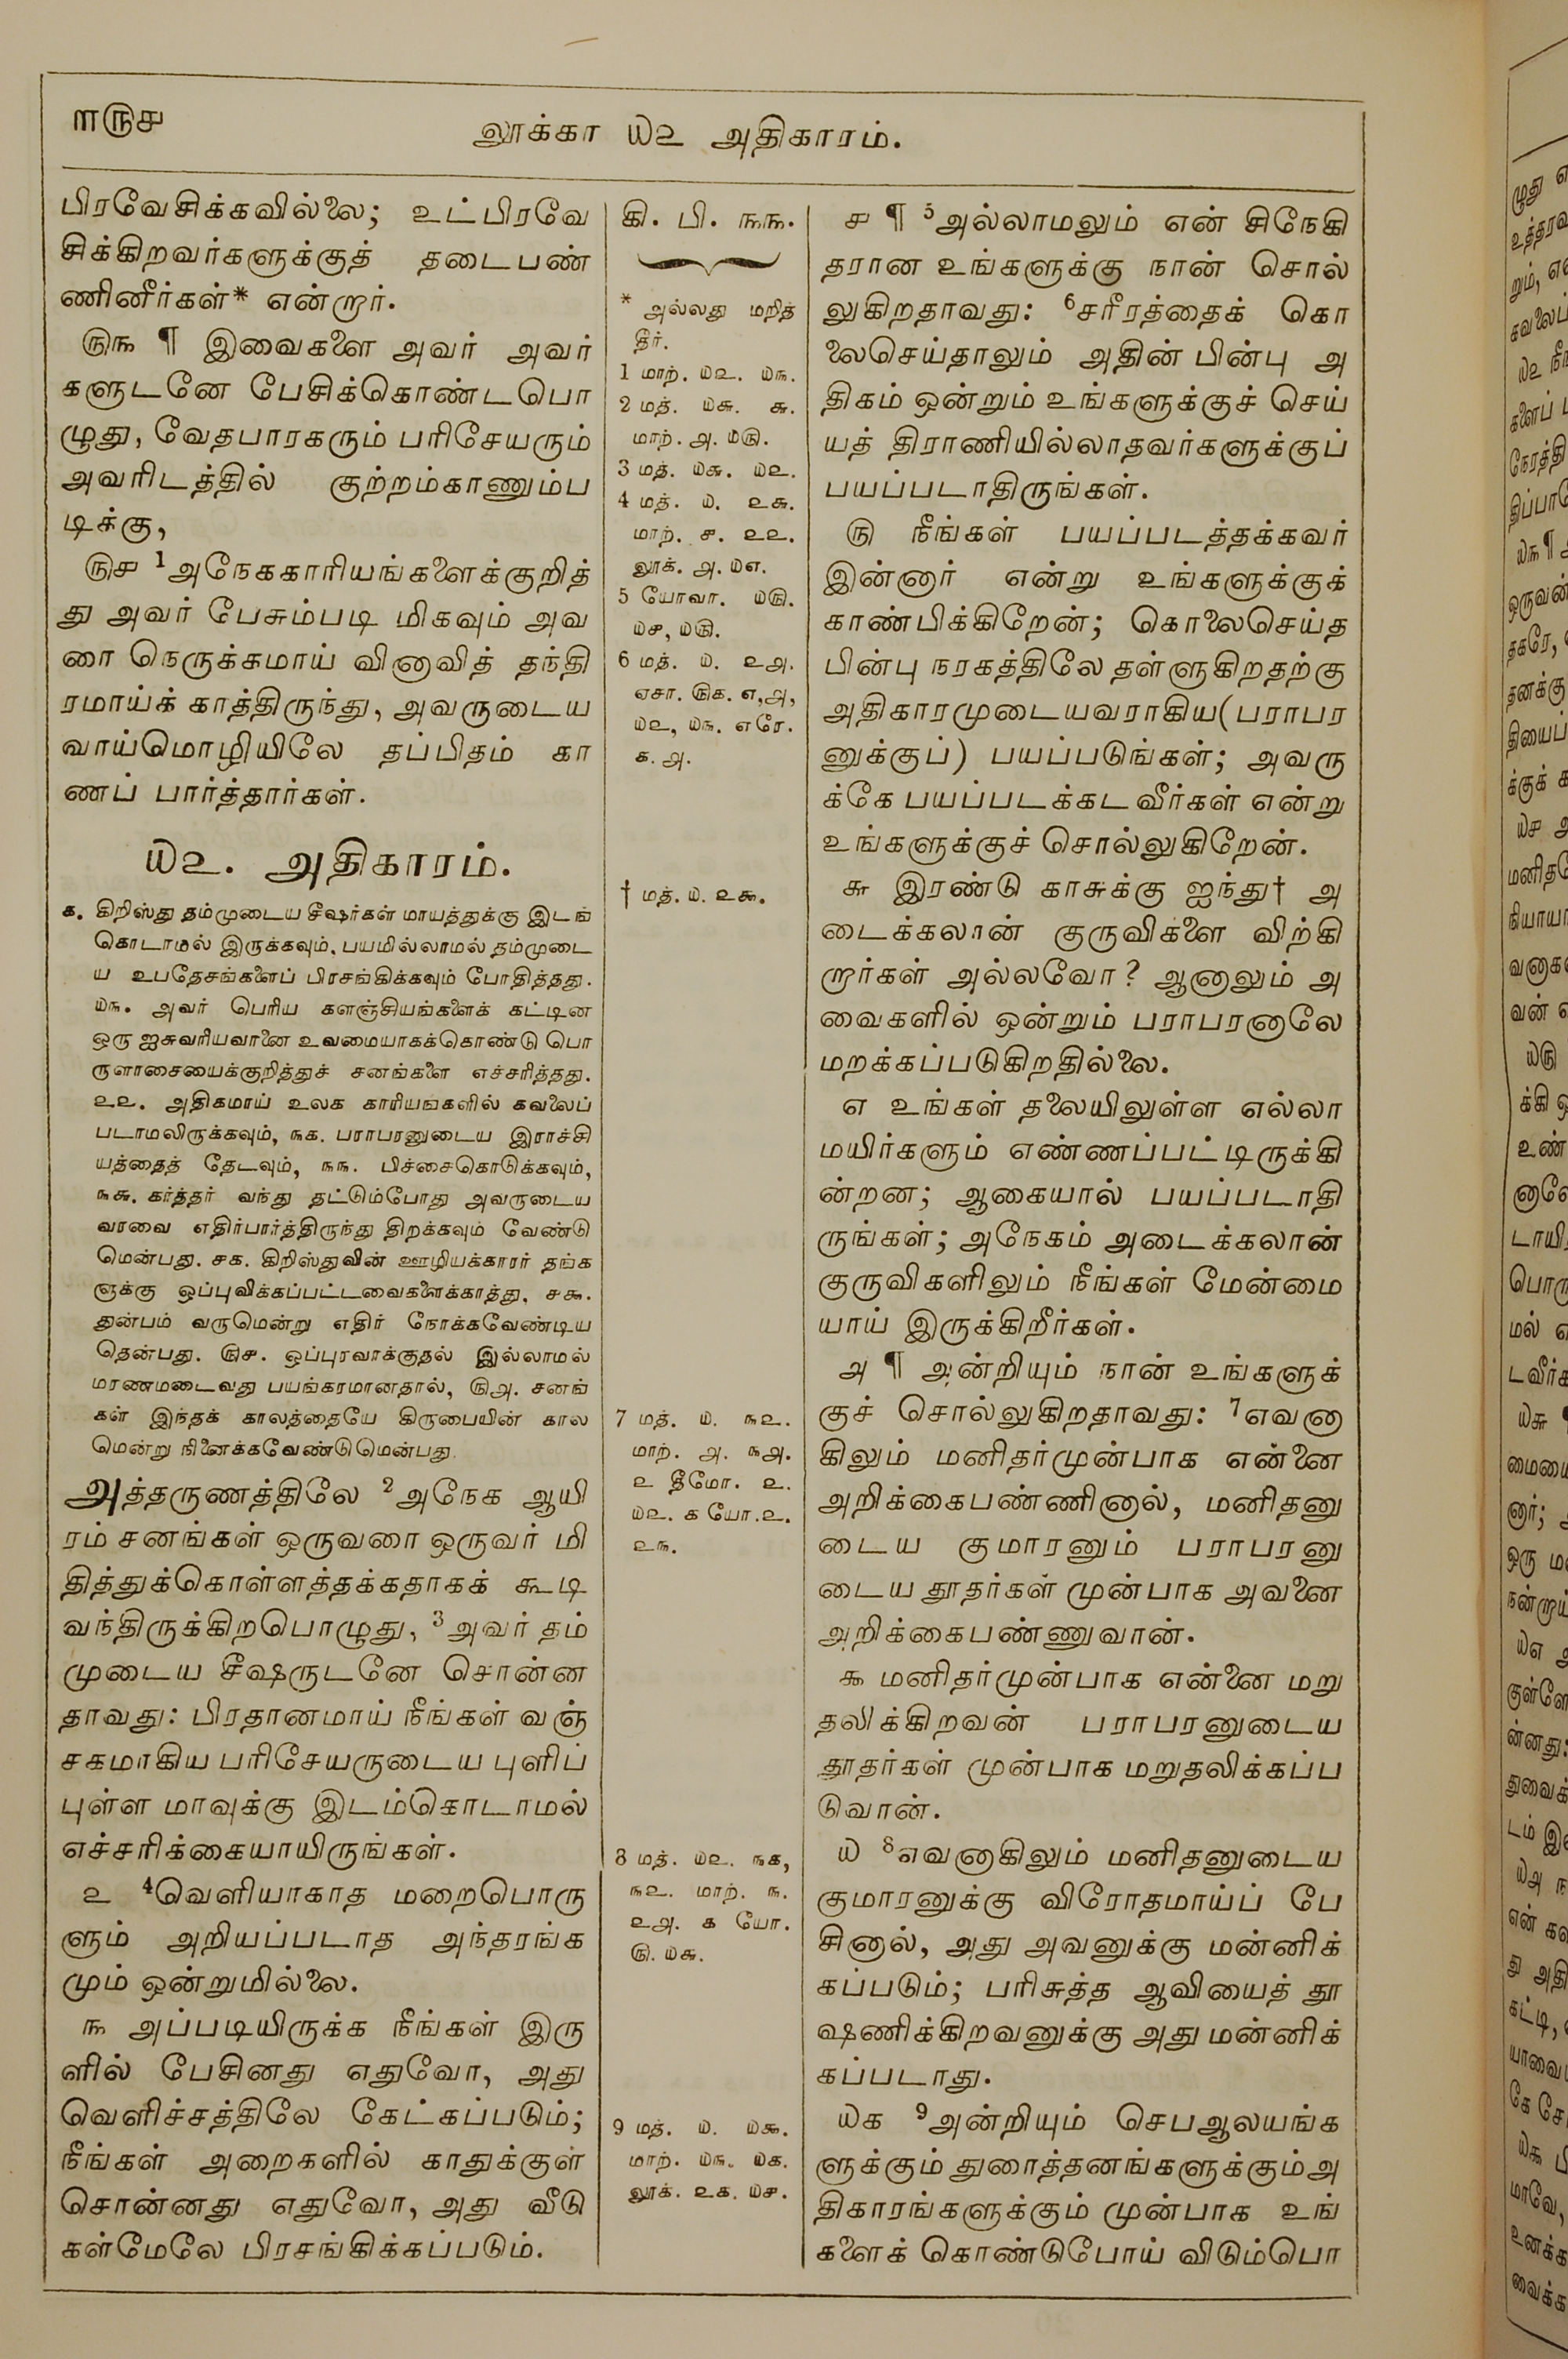 ௱௫௪
லூக்கா ௰௨ அதிகாரம்.
பிரவேசிக்கவில்லை; உட்பிரவே
சிக்கிறவர்களுக்குத் தடைபண்
ணினீர்கள்* என்றார்.
௫௩ ¶ இவைகளை அவர் அவர்
களுடனே பேசிக்கொண்டபொ
ழுது, வேதபாரகரும் பரிசேயரும்
அவரிடத்தில் குற்றம்காணும்ப
டிக்கு,
௫௪ 1அநேககாரியங்களைக்குறித்
து அவர் பேசும்படி மிகவும் அவ
ரை நெருக்கமாய் வினாவித் தந்தி
ரமாய்க் காத்திருந்து, அவருடைய
வாய்மொழியிலே தப்பிதம் கா
ணப் பார்த்தார்கள்.
௰௨. அதிகாரம்.
௧. கிறிஸ்து தம்முடைய சீஷர்கள் மாயத்துக்கு இடங்
கொடாமல் இருக்கவும், பயமில்லாமல் தம்முடை
ய உபதேசங்களைப் பிரசங்கிக்கவும் போதித்தது.
௰௩. அவர் பெரிய களஞ்சியங்களைக் கட்டின
ஒரு ஐசுவரியவானை உவமையாகக்கொண்டு பொ
ருளாசையைக்குறித்துச் சனங்களை எச்சரித்தது.
௨௨. அதிகமாய் உலக காரியங்களில் கவலைப்
படாமலிருக்கவும், ௩௧. பராபரனுடைய இராச்சி
யத்தைத் தேடவும், ௩௩. பிச்சைகொடுக்கவும்,
௩௬. கர்த்தர் வந்து தட்டும்போது அவருடைய
வரவை எதிர்பார்த்திருந்து திறக்கவும் வேண்டு
மென்பது. ௪௧. கிறிஸ்துவின் ஊழியக்காரர் தங்க
ளுக்கு ஒப்புவிக்கப்பட்டவைகளைக்காத்து, ௪௯.
துன்பம் வருமென்று எதிர் நோக்கவேண்டிய
தென்பது. ௫௪. ஒப்புரவாக்குதல் இல்லாமல்
மரணமடைவது பயங்கரமானதால், ௫௮. சனங்
கள் இந்தக் காலத்தையே கிருபையின் கால
மென்று நினைக்கவேண்டுமென்பது.
அத்தருணத்திலே 2அநேக ஆயி
ரம் சனங்கள் ஒருவரை ஒருவர் மி
தித்துக்கொள்ளத்தக்கதாகக் கூடி
வந்திருக்கிறபொழுது, 3அவர் தம்
முடைய சீஷருடனே சொன்ன
தாவது: பிரதானமாய் நீங்கள் வஞ்
சகமாகிய பரிசேயருடைய புளிப்
புள்ள மாவுக்கு இடம்கொடாமல்
எச்சரிக்கையாயிருங்கள்.
௨ 4வெளியாகாத மறைபொரு
ளும் அறியப்படாத அந்தரங்க
மும் ஒன்றுமில்லை.
௩ அப்படியிருக்க நீங்கள் இரு
ளில் பேசினது எதுவோ, அது
வெளிச்சத்திலே கேட்கப்படும்;
நீங்கள் அறைகளில் காதுக்குள்
சொன்னது எதுவோ, அது வீடு
கள்மேலே பிரசங்கிக்கப்படும்.
கி. பி. ௩௩.
* அல்லது மறித்
தீர்.
1 மாற். ௰௨. ௰௩.
2 மத். ௰௬. ௬.
மாற். ௮. ௰௫.
3 மத். ௰௬. ௰௨.
4 மத். ௰. ௨௬.
மாற். ௪. ௨௨.
லூக். ௮. ௰௭.
5 யோவா. ௰௫.
௰௪, ௰௫.
6 மத். ௰. ௨௮.
ஏசா. ௫௧. ௭,௮,
௰௨, ௰௩. எரே.
௧. ௮.
† மத். ௰. ௨௯.
7 மத். ௰. ௩௨.
மாற். ௮. ௩௮.
௨ தீமோ. ௨.
௰௨. ௧ யோ.௨.
௨௩.
8 மத். ௰௨. ௩௧,
௩௨. மாற். ௩.
௨௮. ௧ யோ.
௫. ௰௬.
9 மத். ௰. ௰௯.
மாற். ௰௩. ௰௧.
லூக். ௨௧. ௰௪.
௪ ¶ 5அல்லாமலும் என் சிநேகி
தரான உங்களுக்கு நான் சொல்
லுகிறதாவது: 6சரீரத்தைக் கொ
லைசெய்தாலும் அதின் பின்பு அ
திகம் ஒன்றும் உங்களுக்குச் செய்
யத் திராணியில்லாதவர்களுக்குப்
பயப்படாதிருங்கள்.
௫ நீங்கள் பயப்படத்தக்கவர்
இன்னார் என்று உங்களுக்குக்
காண்பிக்கிறேன்; கொலைசெய்த
பின்பு நரகத்திலே தள்ளுகிறதற்கு
அதிகாரமுடையவராகிய(பராபர
னுக்குப்) பயப்படுங்கள்; அவரு
க்கே பயப்படக்கடவீர்கள் என்று
உங்களுக்குச் சொல்லுகிறேன்.
௬ இரண்டு காசுக்கு ஐந்து† அ
டைக்கலான் குருவிகளை விற்கி
றார்கள் அல்லவோ? ஆனாலும் அ
வைகளில் ஒன்றும் பராபரனாலே
மறக்கப்படுகிறதில்லை.
௭ உங்கள் தலையிலுள்ள எல்லா
மயிர்களும் எண்ணப்பட்டிருக்கி
ன்றன; ஆகையால் பயப்படாதி
ருங்கள்; அநேகம் அடைக்கலான்
குருவிகளிலும் நீங்கள் மேன்மை
யாய் இருக்கிறீர்கள்.
௮ ¶ அன்றியும் நான் உங்களுக்
குச் சொல்லுகிறதாவது: 7எவனா
கிலும் மனிதர்முன்பாக என்னை
அறிக்கைபண்ணினால், மனிதனு
டைய குமாரனும் பராபரனு
டைய தூதர்கள் முன்பாக அவனை
அறிக்கைபண்ணுவான்.
௯ மனிதர்முன்பாக என்னை மறு
தலிக்கிறவன் பராபரனுடைய
தூதர்கள் முன்பாக மறுதலிக்கப்ப
டுவான்.
௰ 8எவனாகிலும் மனிதனுடைய
குமாரனுக்கு விரோதமாய்ப் பே
சினால், அது அவனுக்கு மன்னிக்
கப்படும்; பரிசுத்த ஆவியைத் தூ
ஷணிக்கிறவனுக்கு அது மன்னிக்
கப்படாது.
௰௧ 9அன்றியும் செபஆலயங்க
ளுக்கும் துரைத்தனங்களுக்கும்அ
திகாரங்களுக்கும் முன்பாக உங்
களைக் கொண்டுபோய் விடும்பொ